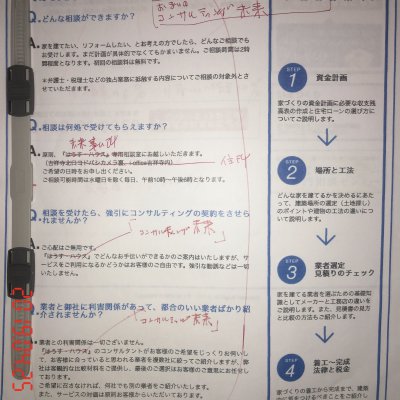 コンサルティング未来
Q.どんな相談ができますか?
A.家を建てたい、リフォームしたい、とお考えの方でしたら、どんなご相談でも
お受けします。まだ計画が具体的でなくてもかまいません。ご相談時間は2時
間程度となります。初回の相談料は無料です。
※弁護士・税理士などの独占業務に抵触する内容についてご相談の対象外とさ
せていただきます。
Q.相談は何処で受けてもらえますか?
未来
A.原則、「はうす・ハウス」専用相談室にお越しいただきます。
住所
ご希望の日時をお申し出ください。
ご相談可能時間は水曜日を除く毎日、午前10時〜午後6時となります。
Q.相談を受けたら、強引にコンサルティングの契約をさせら
れませんか?
「コンサルティング未来」
A.ご心配はご無用です。
「はうす・ハウス」でどんなお手伝いができるかのご案内はいたしますが、サー
ビスをご利用になるかどうかはお客様のご自由です。強引な勧誘などは一切
いたしません。
Q.業者と御社に利害関係があって、都合のいい業者ばかり紹
介されませんか?
「コンサルティング未来」
A.業者との利害関係は一切ございません。
「はうす・ハウス」のコンサルタントがお客様のご希望をじっくりお伺いし
て、お客様に合っていると思われる業者を複数社に絞ってご紹介しますが、弊
社は客観的な比較材料をご提供し、最後のご選択はお客様のご意思にお任せし
ております。
ご希望に召さなければ、何社でも別の業者をご紹介いたします。
また、サービスの対価は原則お客様からいただいております。
STEP
1
資金計画
家づくりの資金計画に必要な収支残
高表の作成と住宅ローンの選び方に
ついてご説明します。
STEP
2
場所と工法
どんな家を建てるかを決めるにあた
って、建築場所の選定(土地探し)
のポイントや建物の工法の違いにつ
いてご説明します。
STEP
3
業者選定
見積りのチェック
家を建てる業者を選ぶための基礎知
識としてメーカーと工務店の違いを
ご説明します。また、見積書の見方
と比較の方法もご紹介します。
STEP
4
着工〜完成
法律と税金
家づくりの着工から完成まで、建築